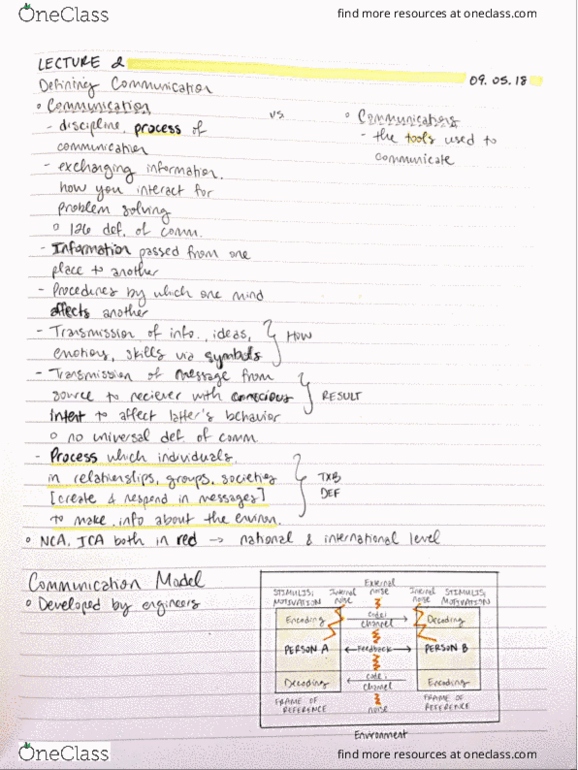 OneClass
find more resources at oneclass.com
LECTURE 2
09.05.18
Defining Communication
• Communication
vs
• Communications
- discipline, process of
communication
- the tools used to
communicate
- exchanging information,
how you interact for
problem solving
o 126 def. of comm.
- Information passed from one
place to another
- Procedures by which one mind
affects another
- Transmission of info., ideas,
emotions, skills via symbols
HOW
- Transmission of message from
source to reciever with conscious
intent to affect latter's behavior
RESULT
o no universal def. of comm.
- Process which individuals,
in relationships, groups, societies
[create & respond in messages]
to make info about the environ.
TXB
DEF
• NCA, ICA both in red → national & international level
Communication Model
• Developed by engineers
STIMULI;
MOTIVATION
Internal
noise
External
noise
Internal
noise
STIMULI;
MOTIVATION
Encoding
code;
channel
Decoding
PERSON A
Feedback
PERSON B
Decoding
code;
channel
Encoding
FRAME OF
REFERENCE
noise
FRAME OF
REFERENCE
Environment
OneClass
find more resources at oneclass.com